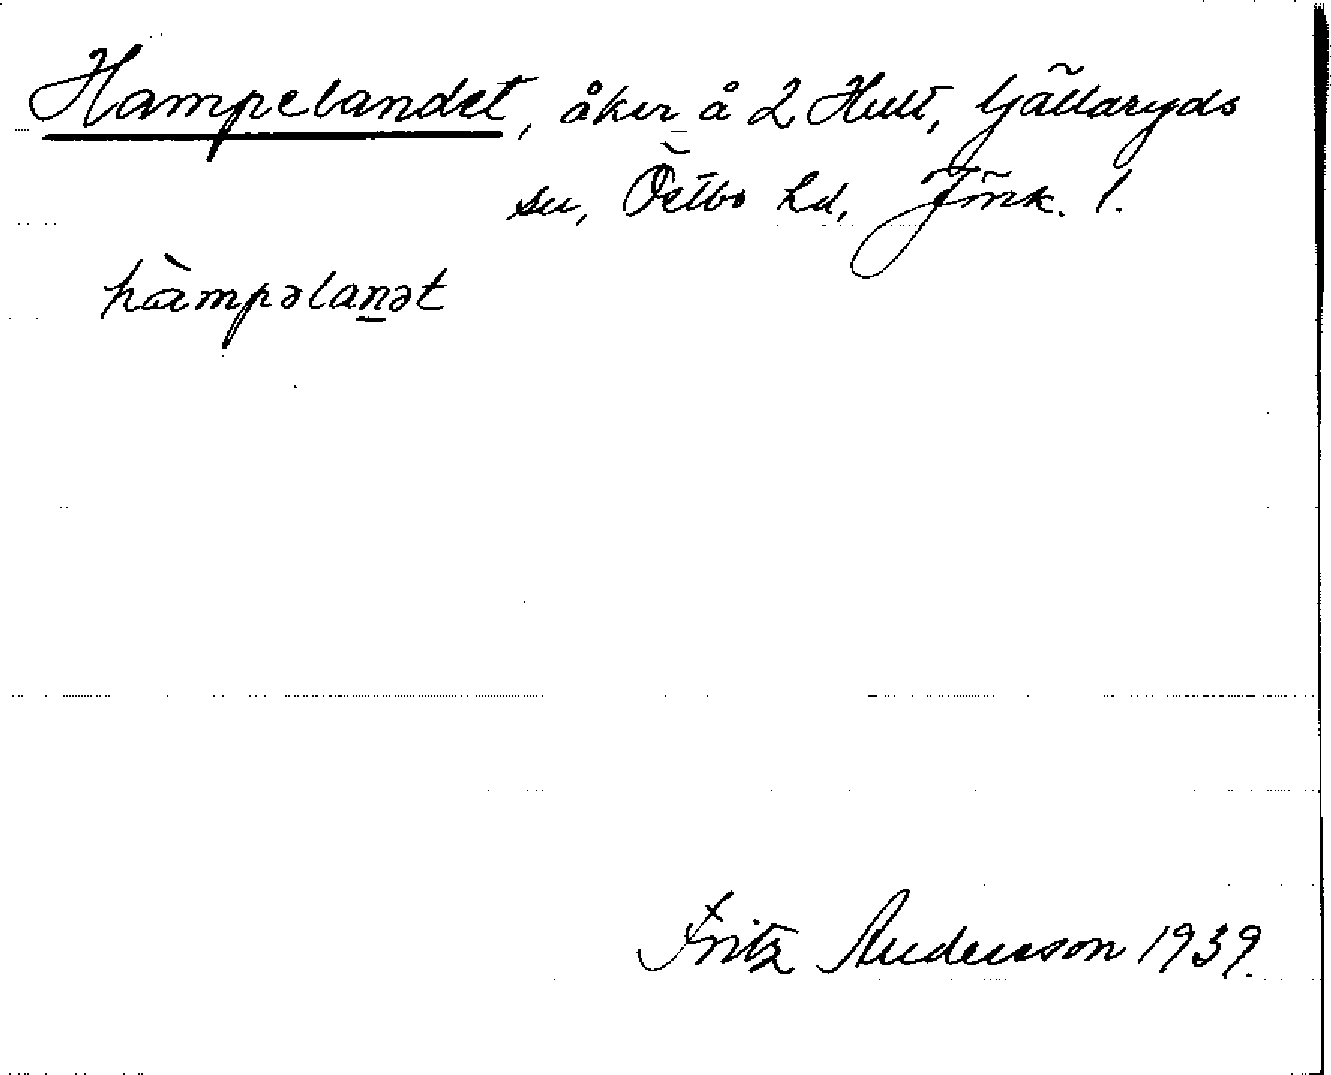 Hampelandet, åker å 2 Hult, Gällaryds
sn, Östbo hd, Jönk. l.
hàmpəlan̲ət
Fritz Andersson 1939.